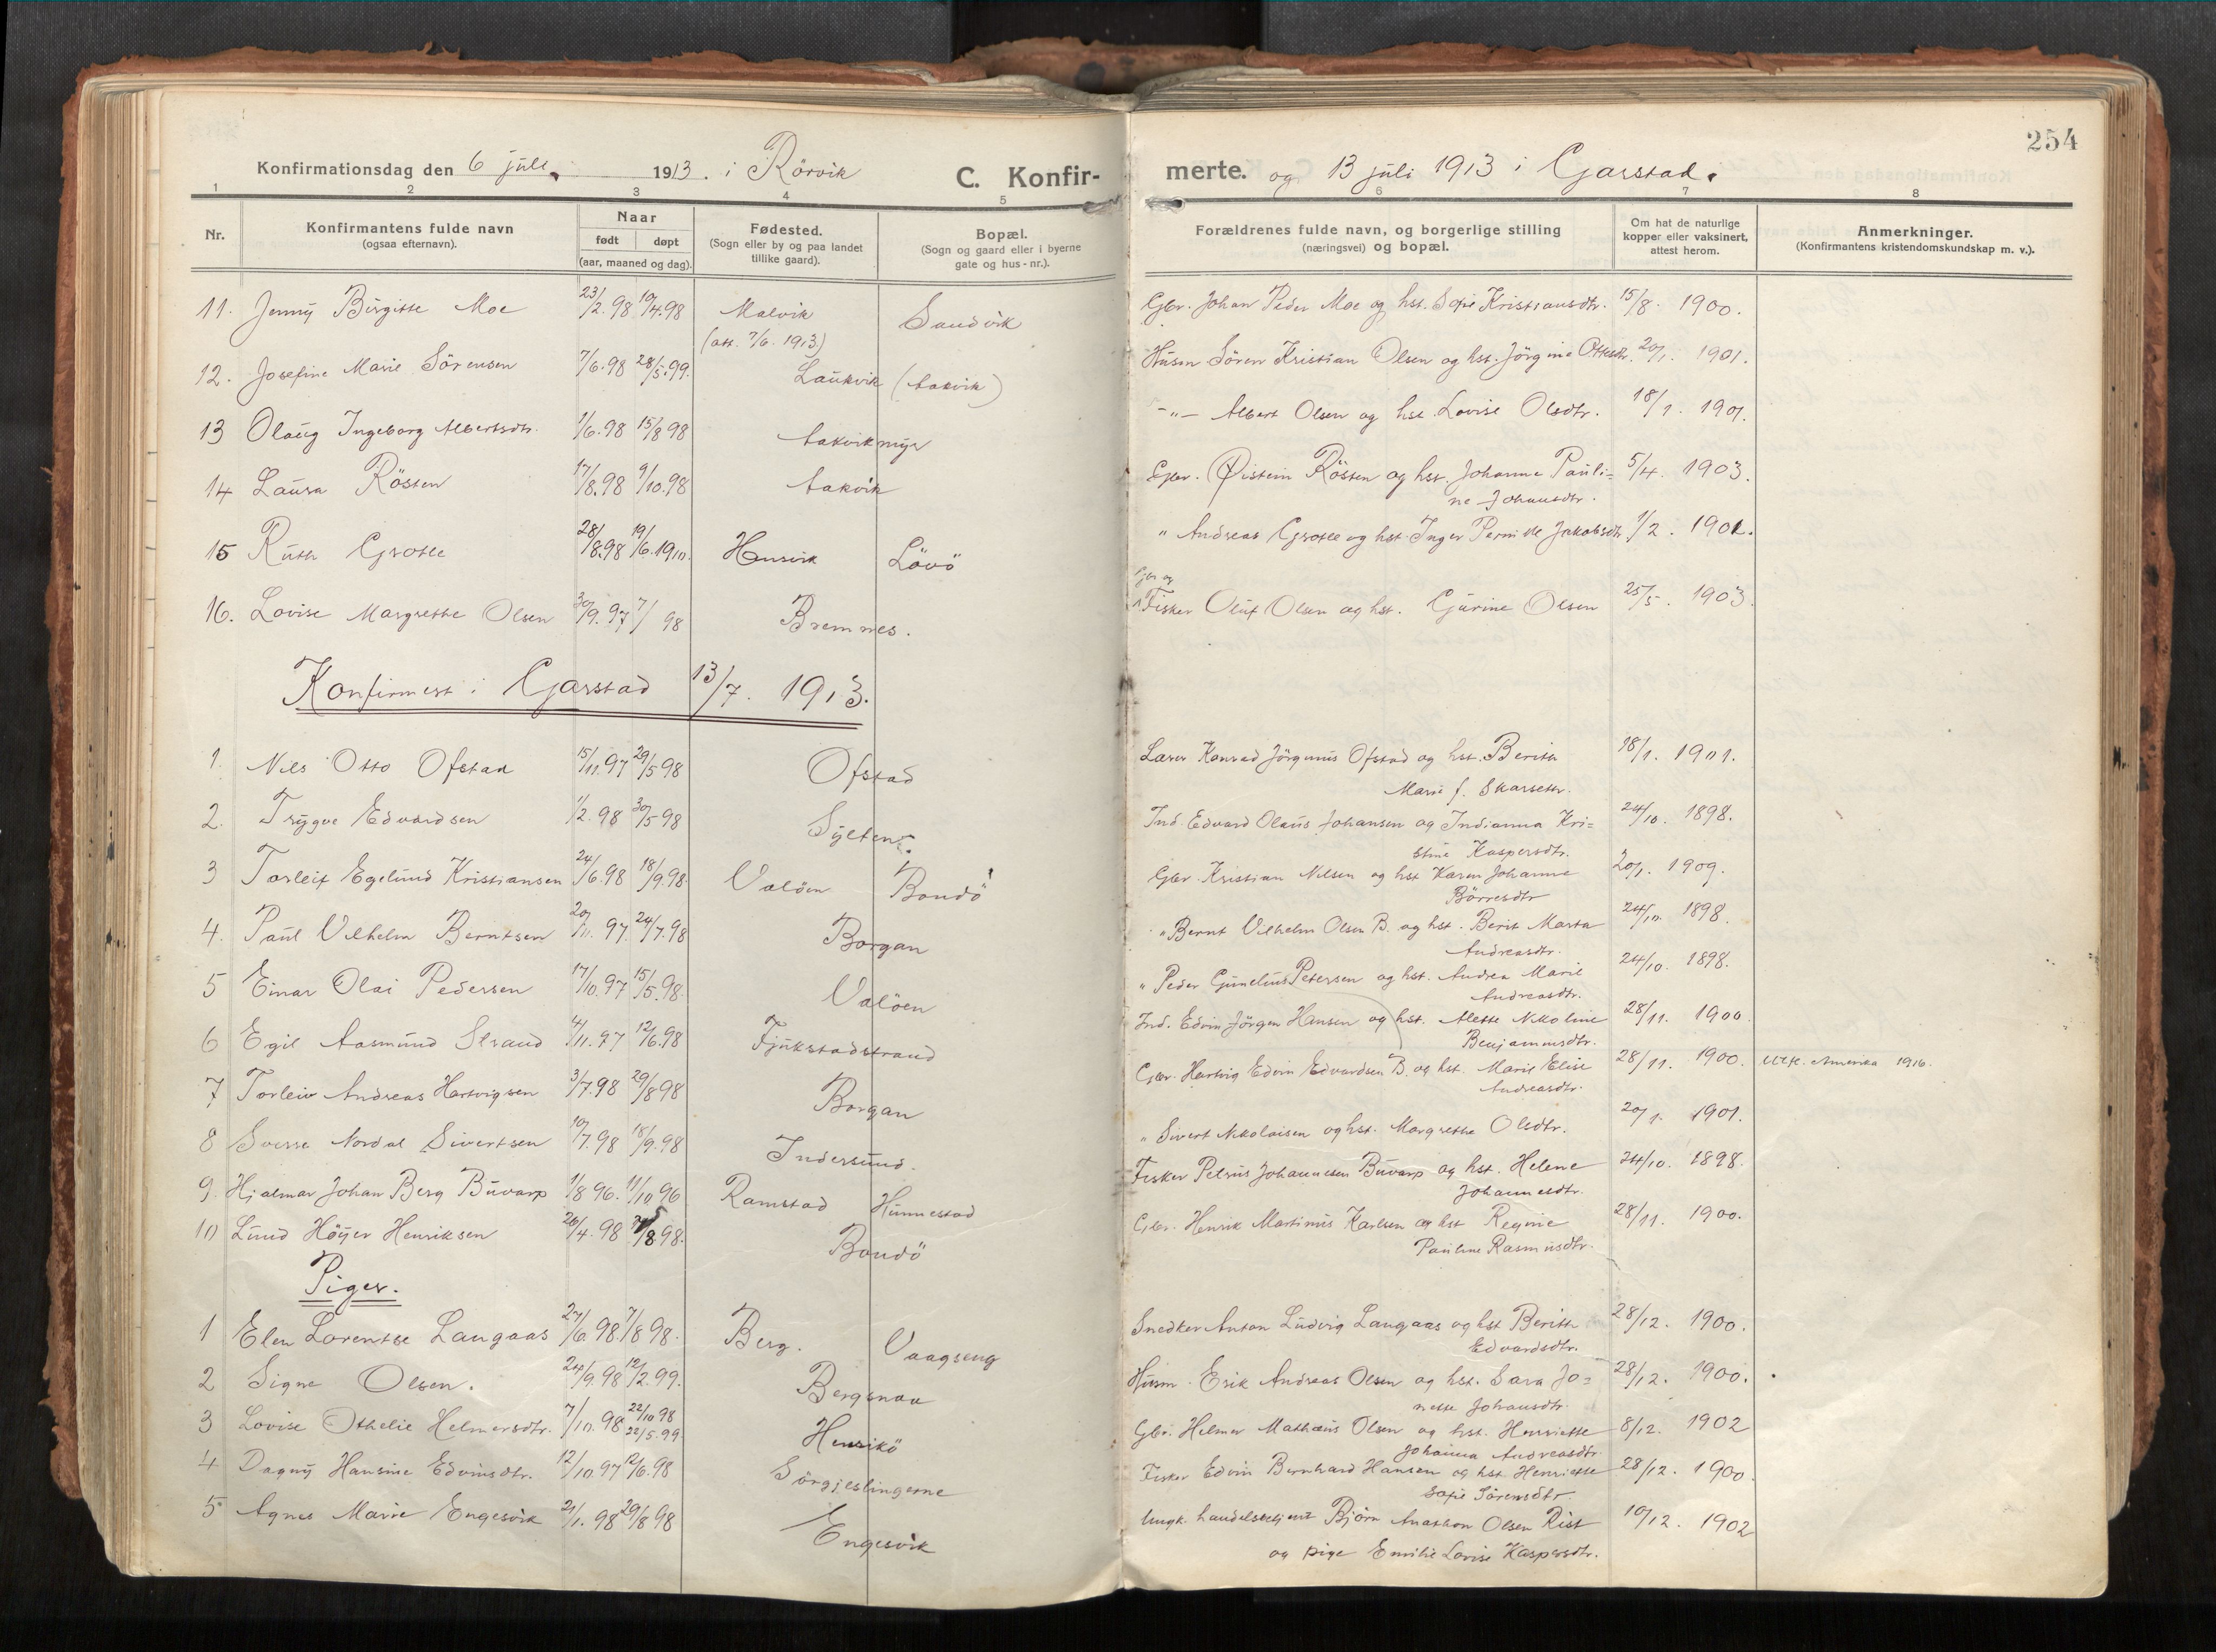 254
Konfirmationsdag den 6 juli 1913. i Rörvik C. Konfir-
merte. og 13 juli 1913 i Garstad.
1 2 3 4 5 6 7 8
Nr.
Konfirmantens fulde navn
(ogsaa efternavn).
Naar
født døpt
(aar, maaned og dag).
Fødested.
(Sogn eller by og paa landet
tillike gaard).
Bopæl.
(Sogn og gaard eller i byerne
gate og hus-nr.).
Forældrenes fulde navn, og borgerlige stilling
(næringsvei) og bopæl.
Om hat de naturlige
kopper eller vaksinert,
attest herom.
Anmerkninger.
(Konfirmantens kristendomskundskap m. v.).
11. Jenny Birgitte Moe 23/2.98 10/4.98 Malvik Sandvik Gbr. Johan Peder Moe og hst. Sofie Kristiansdtr. 15/8. 1900.
(att. 7/6. 1913)
12. Josefine Marie Sörensen 7/6.98 28/5.99. Laukvik (Aakvik) Husm Sören Kristian Olsen og hst. Jörgine Ottesdtr. 20/1. 1901.
13 Olaug Ingeborg Albertsdtr. 1/6.98 15/8 98 Aakvikmyr -"- Albert Olsen og hst. Lovise Olsdtr. 18/1. 1901.
14 Laura Rösten 17/8.98 9/10.98 Aakvik Gbr. Øistein Rösten og hst. Johanna Pauli=
ne Johansdtr. 5/4. 1903.
15 Ruth Grotte 28/8.98 19/6.1910. Hensvik Lövö " Andreas Grotte og hst. Inger Pernille Jakobsdtr. 1/2. 1901.
16. Lovise Margrethe Olsen 30/9.97 7/ 98 Bremnes. Gbr og
Fisker Oluf Olsen og hst. Gurine Olsen 25/5. 1903.
Konfirmert i Garstad 13/7. 1913.
1. Nils Otto Ofstad 15/11.97 29/5 98 Ofstad Lærer Konrad Jörginus Ofstad og hst. Berith
Marie f. Skarseth. 18/1. 1901.
2. Trygve Edvardsen 1/2.98 30/5 98 Sylten. Ind. Edvard Olaus Johansen og Indianna Kri=
stine Kaspersdtr. 24/10. 1898.
3 Torleif Egelund Kristiansen 24/6.98 18/9.98. Valöen Bondö Gbr. Kristian Nilsen og hst Karen Johanne
Börresdtr 20/1. 1909.
4. Paul Vilhelm Berntsen 20/11.97. 24/7.98 Borgan " Bernt Vilhelm Olsen B. og hst. Berit Marta
Andreasdtr. 24/10. 1898.
5 Einar Olai Pedersen 17/10.97 15/5.98. Valöen " Peder Gunelius Petersen og hst. Andrea Marie
Andreasdtr. 24/10. 1898.
6 Egil Aasmund Strand 4/11.97 12/6.98 Fjukstadstrand Ind. Edvin Jörgen Hansen og hst. Alette Nikoline
Benjaminsdtr. 28/11. 1900.
7 Torleiv Andreas Hartvigsen 3/7.98 29/8 98 Borgan Gbr. Hartvig Edvin Edvardsen B. og hst. Marie Elise
Andreasdtr. 28/11. 1900. Utfl. Amerika 1916.
8 Sverre Nordal Sivertsen 10/7.98 18/9.98 Indersund. " Sivert Nikolaisen og hst. Margrethe Olsdtr. 20/1. 1901.
9. Hjalmar Johan Berg Buvarp 1/8 96. 11/10 96 Ramstad Hunnestad Fisker Petrus Johannesen Buvarp og hst. Helene
Johannesdtr. 24/10. 1898.
10 Lund Höyer Henriksen 26/4.98 /8 98. Bondö Gbr. Henrik Martinus Karlsen og hst Regine
Pauline Rasmusdtr. 28/11. 1900.
Piger.
1 Elen Lorentse Langaas 27/6 98. 7/8 98. Berg. Vaagseng Snedker Anton Ludvig Langaas og hst Berith
Edvardsdtr. 28/12. 1900.
2 Signe Olsen. 24/9.98 12/2.99. Bergsnau Husm. Erik Andreas Olsen og hst. Sara Jo=
nette Johansdtr. 28/12. 1900.
3 Lovise Othelie Helmersdtr. 7/10.98 22/10 98
22/5.99 Henrikö Gbr. Helmer Mathæus Olsen og hst. Henriette
Johanna Andreasdtr. 8/12. 1902
4 Dagny Hansine Edvinsdtr. 12/10 97 12/6.98 Sörgjeslingerne Fisker Edvin Bernhard Hansen og hst. Henriette
Sofie Sörensdtr. 28/12. 1900.
5 Agnes Marie Engesvik 21/1.98 29/8 98 Engesvik Ungk. handelsbetjent Björn Anathon Olsen Rist
og pige Emilie Lovise Kaspersdtr. 10/12. 1902